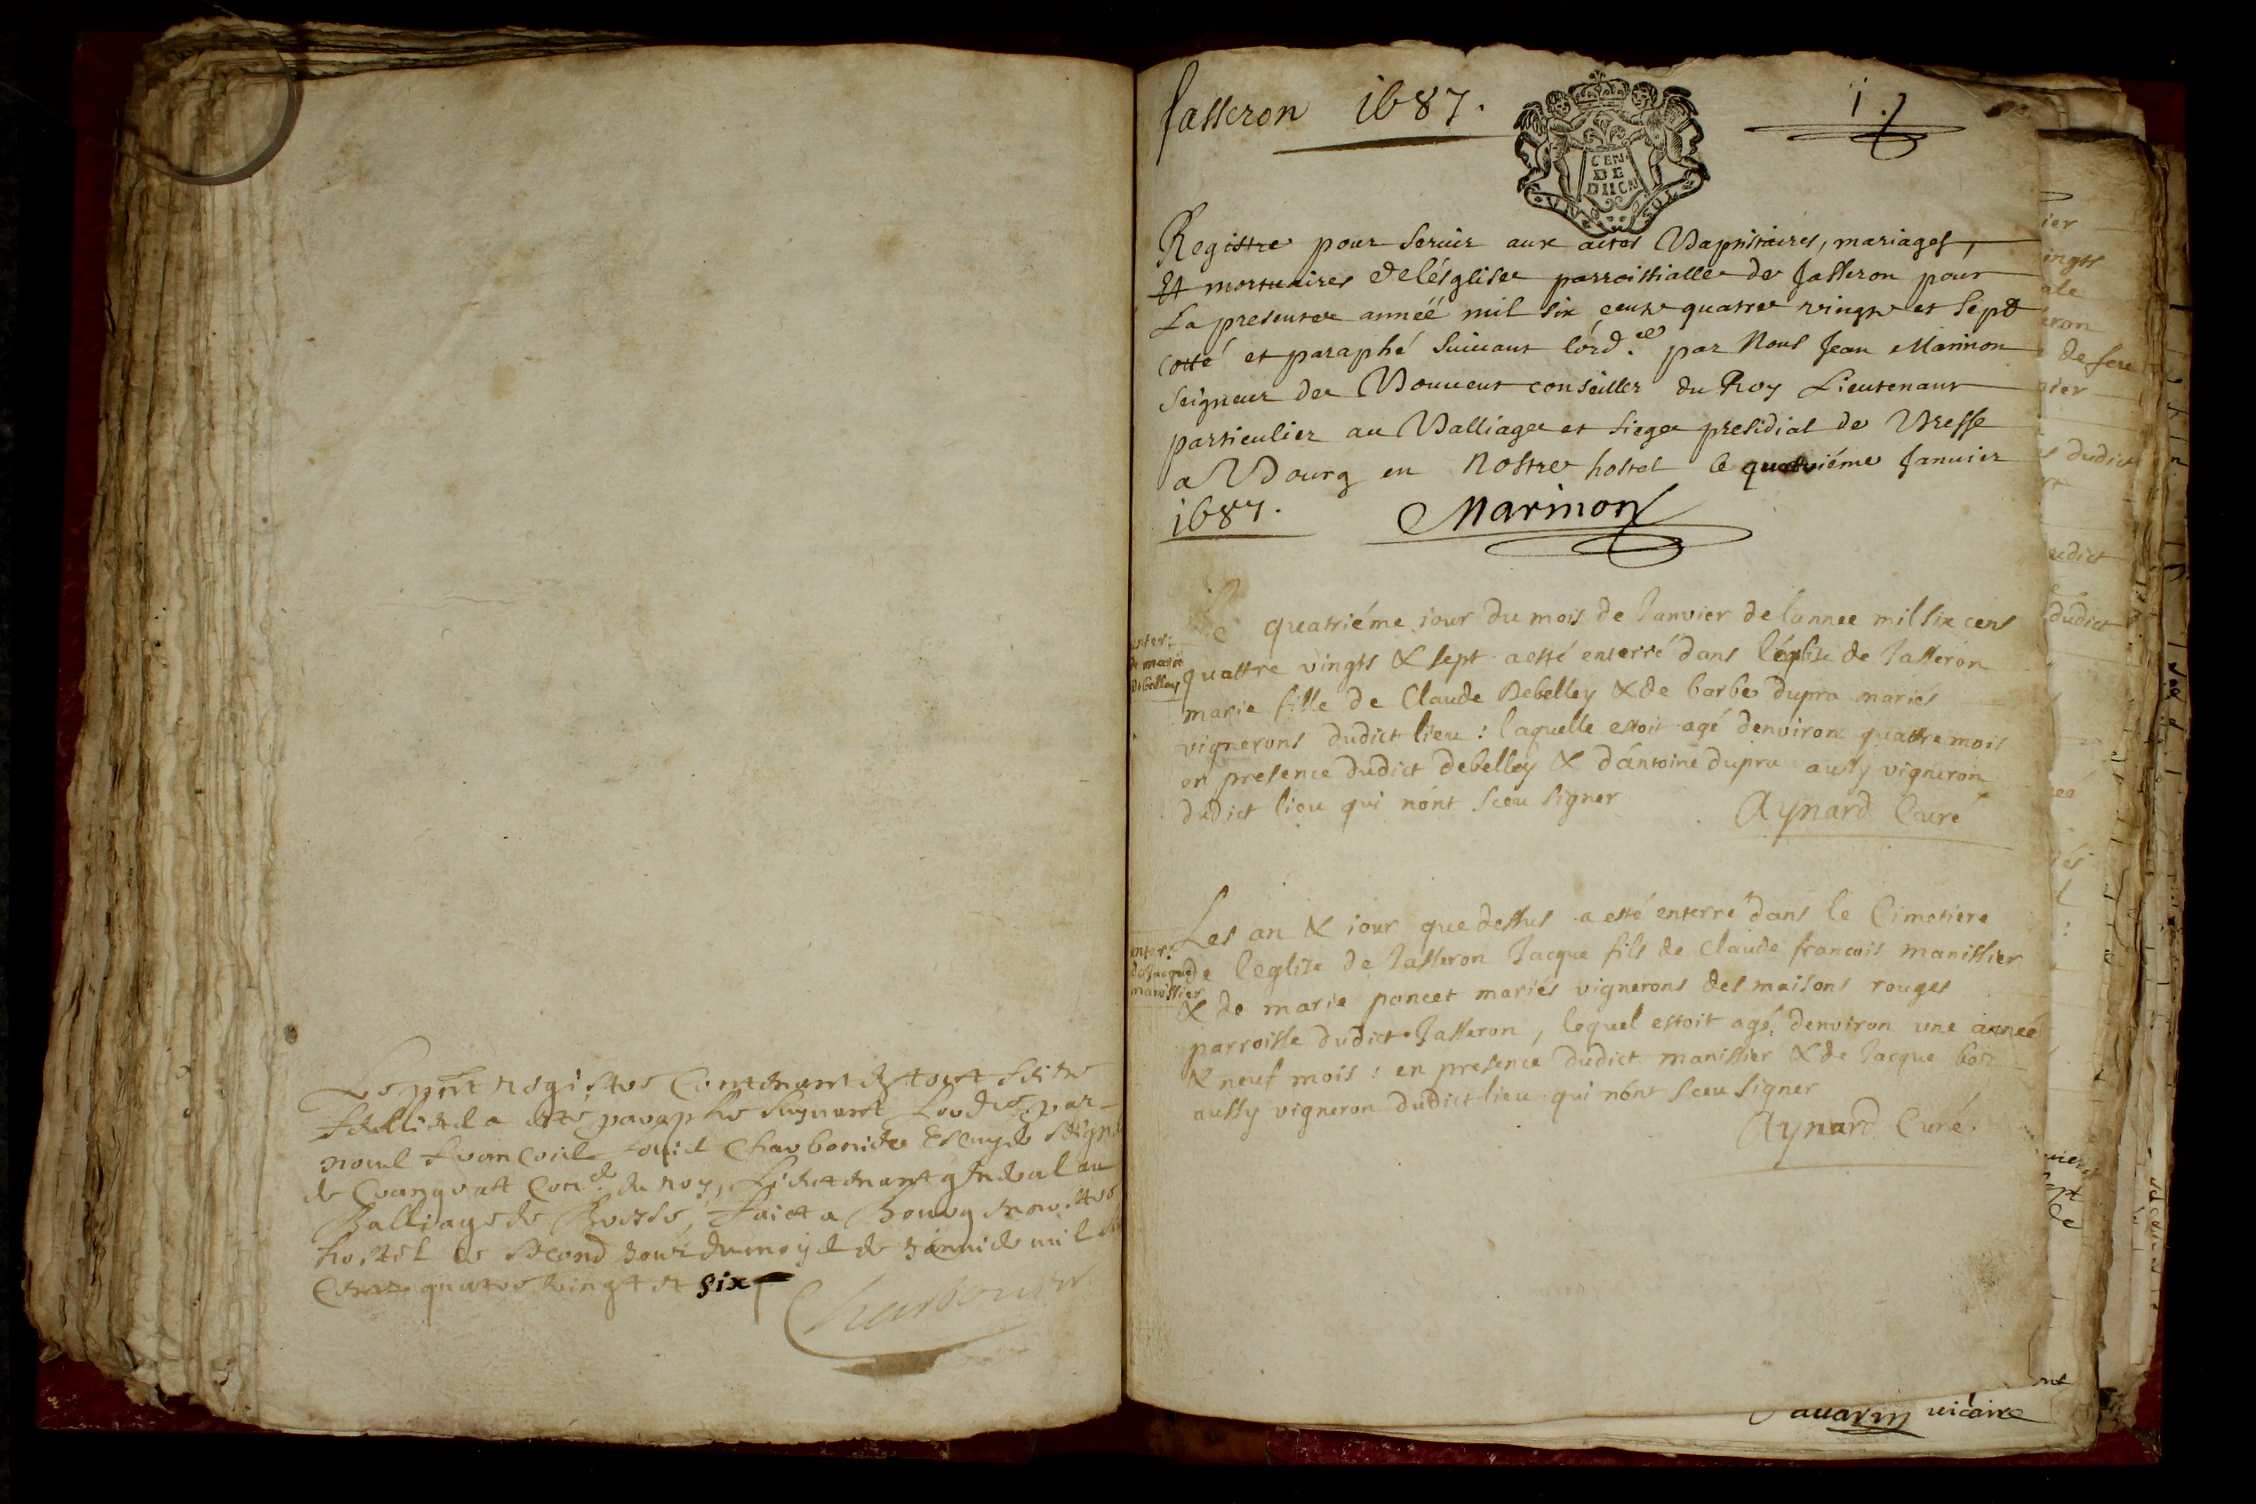 Le pnt registre Contenant et sept
feullietz a este paraphé suyvant Lordre par
nous francois Louis Charbonier Escuyer Seigr
de Crangeat Conr du roy, Lieutenant general au
Balliage de Bresse, faict a Bourg en nostre
hostel le second jour du moys de Janvier mil
Centz quatre vingt et six
Charbonier
Jasseron 1687.
1.
CEN
DE
DIICN
VN SOL
Registre pour servir aux actes Baptistaires, mariages,
Et mortuaires de lésglise parroissialle de Jasseron pour
La presente année mil six centz quatre vingtz et sept
cotté et paraphé suivant lórd.ce par Nous Jean Marinon
Seigneur de Bouvent conseiller du Roy Lieutenant
particulier au Balliage et siege presidial de Bresse
a Bourg en nostre hostel le quatriéme Janvier
1687. Marinon
enter:
de marie
debelley
Le quatriéme jour du mois de Janvier de lannee mil six cens
quattre vingts & sept a esté enterré dans léglise de Jasseron
marie fille de Claude Debelley & de barbe dupra mariés
vignerons dudict lieu : laquelle estoit agé denviron quattre mois
en presence dudict debelley & dántoine dupra aussy vigneron
dudict lieu qui nónt sceu signer
Aynard Curé
enter:
de Jacque
manissier
Les an & iour que dessus a esté enterré dans le Cimetiere
de leglise de Jasseron Jacque fils de Claude francois manissier
& de marie poncet mariés vignerons des maisons rouges
parroisse dudict Jasseron, lequel estoit agé denviron une année
& neuf mois : en presence dudict manissier & de Jacque
aussy vigneron dudict lieu qui nónt sceu signer
Aynard Curé.
vicaire